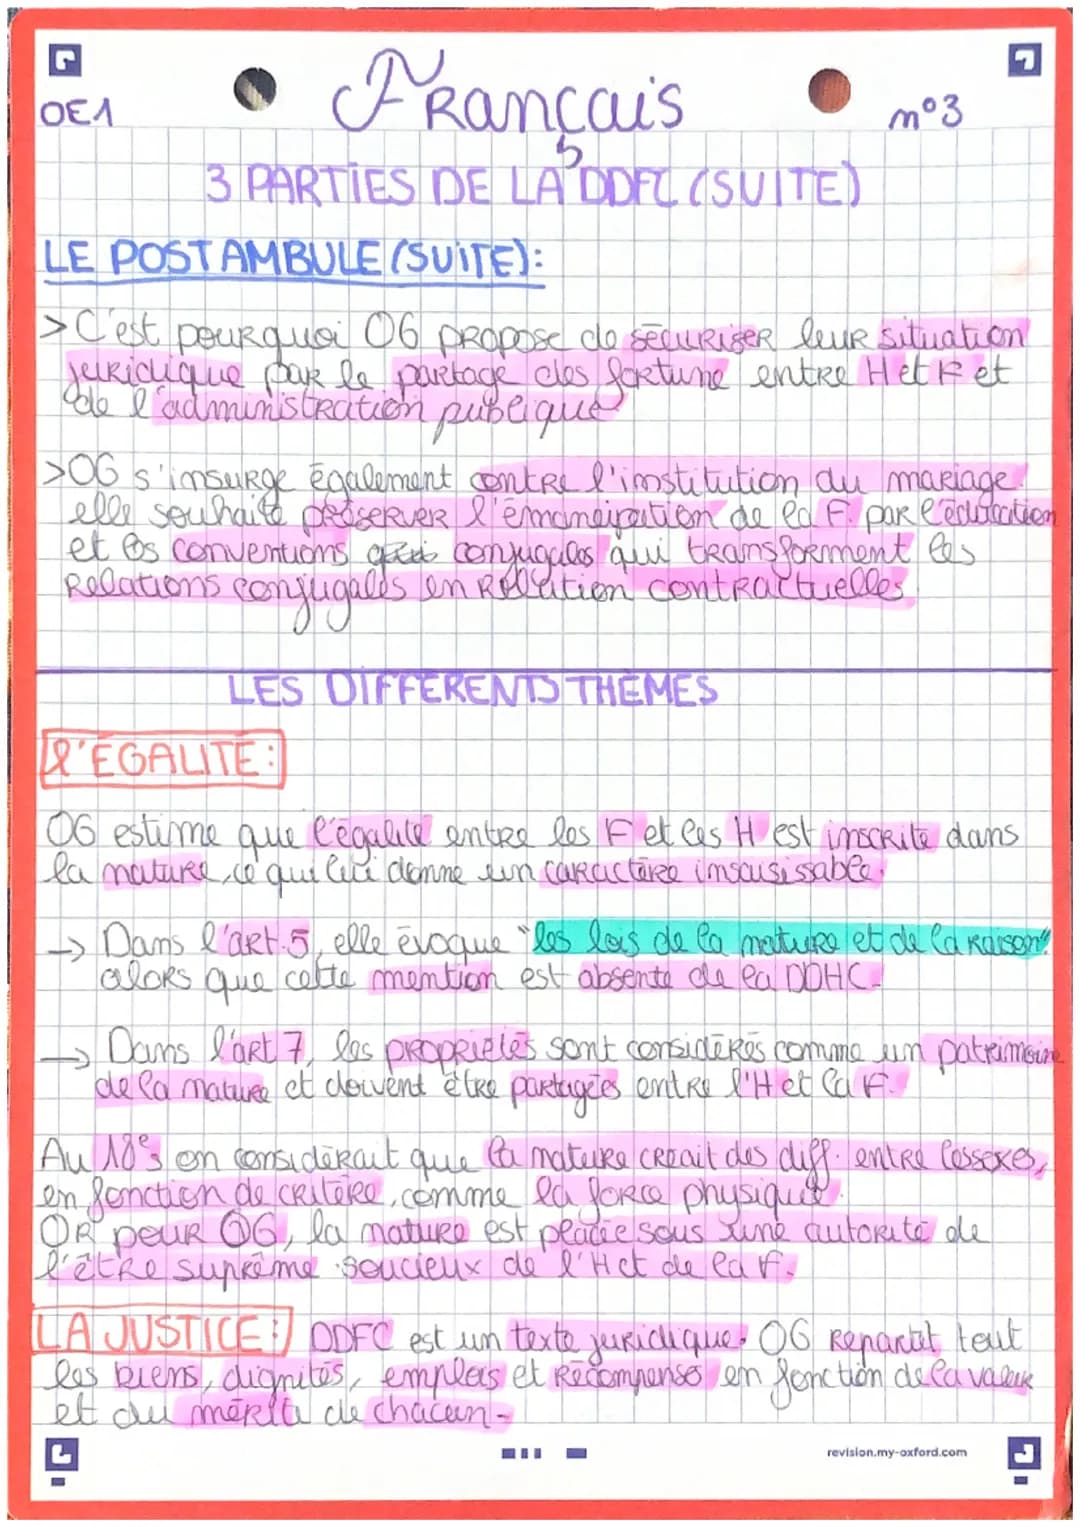 OE1
Français
n°3
3 PARTIES DE LA DDFC (SUITE)
LE POSTAMBULE (SUITE):
>C'est pourquoi OG propose de sécuriser leur situation
juridique par le partage des fortune entre H et F et
de l'administration publique
>OG s'insurge également contre l'institution du mariage.
elle souhaite préserver l'émancipation de la F. par l'éducation
et les conventions conjugales qui transforment les
Relations conjugales en Relation contractuelles.
LES DIFFERENTS THEMES
L'ÉGALITE:
OG estime que l'égalité entre les F et les H est inscrite dans
la nature, ce qui lui donne un caractère insaisissable.
-> Dans l'art.5, elle évoque "les lois de la nature et de la Raison"
alors que cette mention est absente de la DDHC.
-> Dans l'art 7, les propriétés sont considérés comme un patrimoine
de la nature et doivent être partagées entre l'H et la F.
Au 18e s on considérait que la nature créait des diff. entre les sexes,
en fonction de critère, comme la force physique.
OR pour OG, la nature est placée sous une autorité de
l'être suprême soucieux de l'H et de la F.
LA JUSTICE: DDFC est un texte juridique. OG Repartit tout
les biens, dignités, emplois et Récompense en fonction de la valeur
et du mérite de chacun.
revision.my-oxford.com